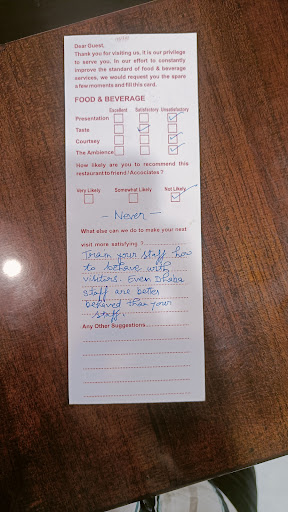 Dear Guest,
Thank you for visiting us, it is our privilege
to serve you. In our effort to constantly
improve the standard of food & beverage
services, we would request you the spare
a few moments and fill this card.
FOOD & BEVERAGE
Excellent Satisfactory Unsatisfactory
Presentation
Taste
Courtsey
The Ambience
How likely are you to recommend this
restaurant to friend / Accociates ?
Very Likely Somewhat Likely Not Likely
- Never -
What else can we do to make your next
visit more satisfying ?
Train your staff how
to behave with
visitors. Even Dhaba
staff are better
behaved than your
staff.
Any Other Suggestions